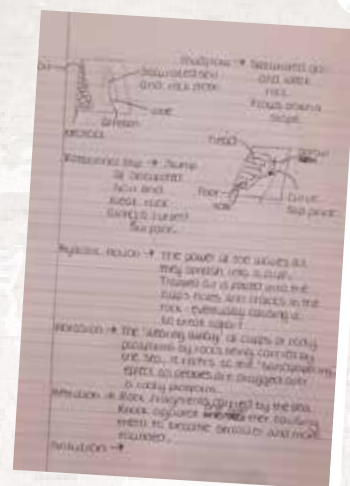 Mudflow → Saturated
and weak
rock
flows down a
slope.
saturated soil
and rock
head
Rotational slip → Slump
of saturated
soil and
weak rock
along a curved
surface.
curve
slip plane.
Hydraulic Action → The power of the waves as
they smash into a cliff.
Trapped air is forced into the
holes and cracks in the
rock eventually causing it
to break apart.
Abrasion → The "wearing away" of cliffs or rocky
platforms by rocks being carried by
the sea, it refers to the "sandpapering"
effect as pebbles are dragged over
a rocky platform.
Attrition → Rock fragments carried by the sea
knock against other causing
them to become smaller and more
rounded.
Solution →